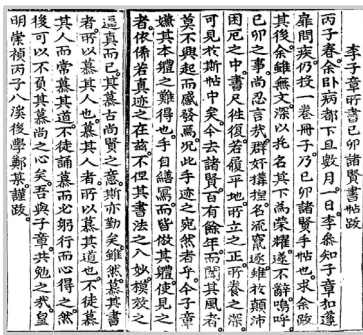 李子章所書己卯諸賢書帖跋
丙子春余臥病都下且數月一日李叅知子章扣蓬
扉問疾仍投一卷冊子乃己卯諸賢手帖也求余跋
其後余雖無文深以托名其下為榮耀遂不辭嗚呼
己卯之事尚忍言哉群奸搆捏名流竄逐雖於顛沛
困厄之中書尺往復若履平地所立之正所養之深
可見於斯帖中矣今去諸賢百有餘年而聞其風者
莫不興起而感發焉况此手迹之宛然者乎今子章
嫌其本體之難得也手自繕寫而皆倣其體使見之
者依俙若真迹之在玆不但其書法之入妙模效之
逼真而已其慕古尚賢之意斯亦勤矣雖然慕其書
者所以慕其人也慕其人者所以慕其道也不徒慕
其人而常慕其道不徒誦慕而必躬行而心得之然
後可以不負其慕尚之心矣吾與子章共勉之哉皇
明崇禎丙子八溪後學鄭謹跋